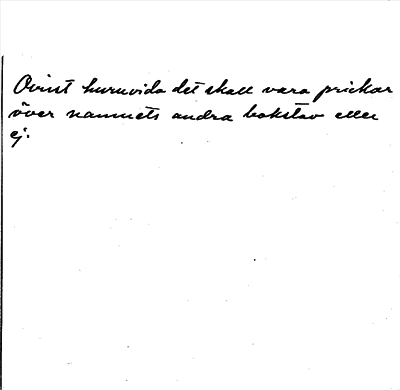 Ovist huruvida det skall vara prickar
över namnets andra bokstav eller
ej.